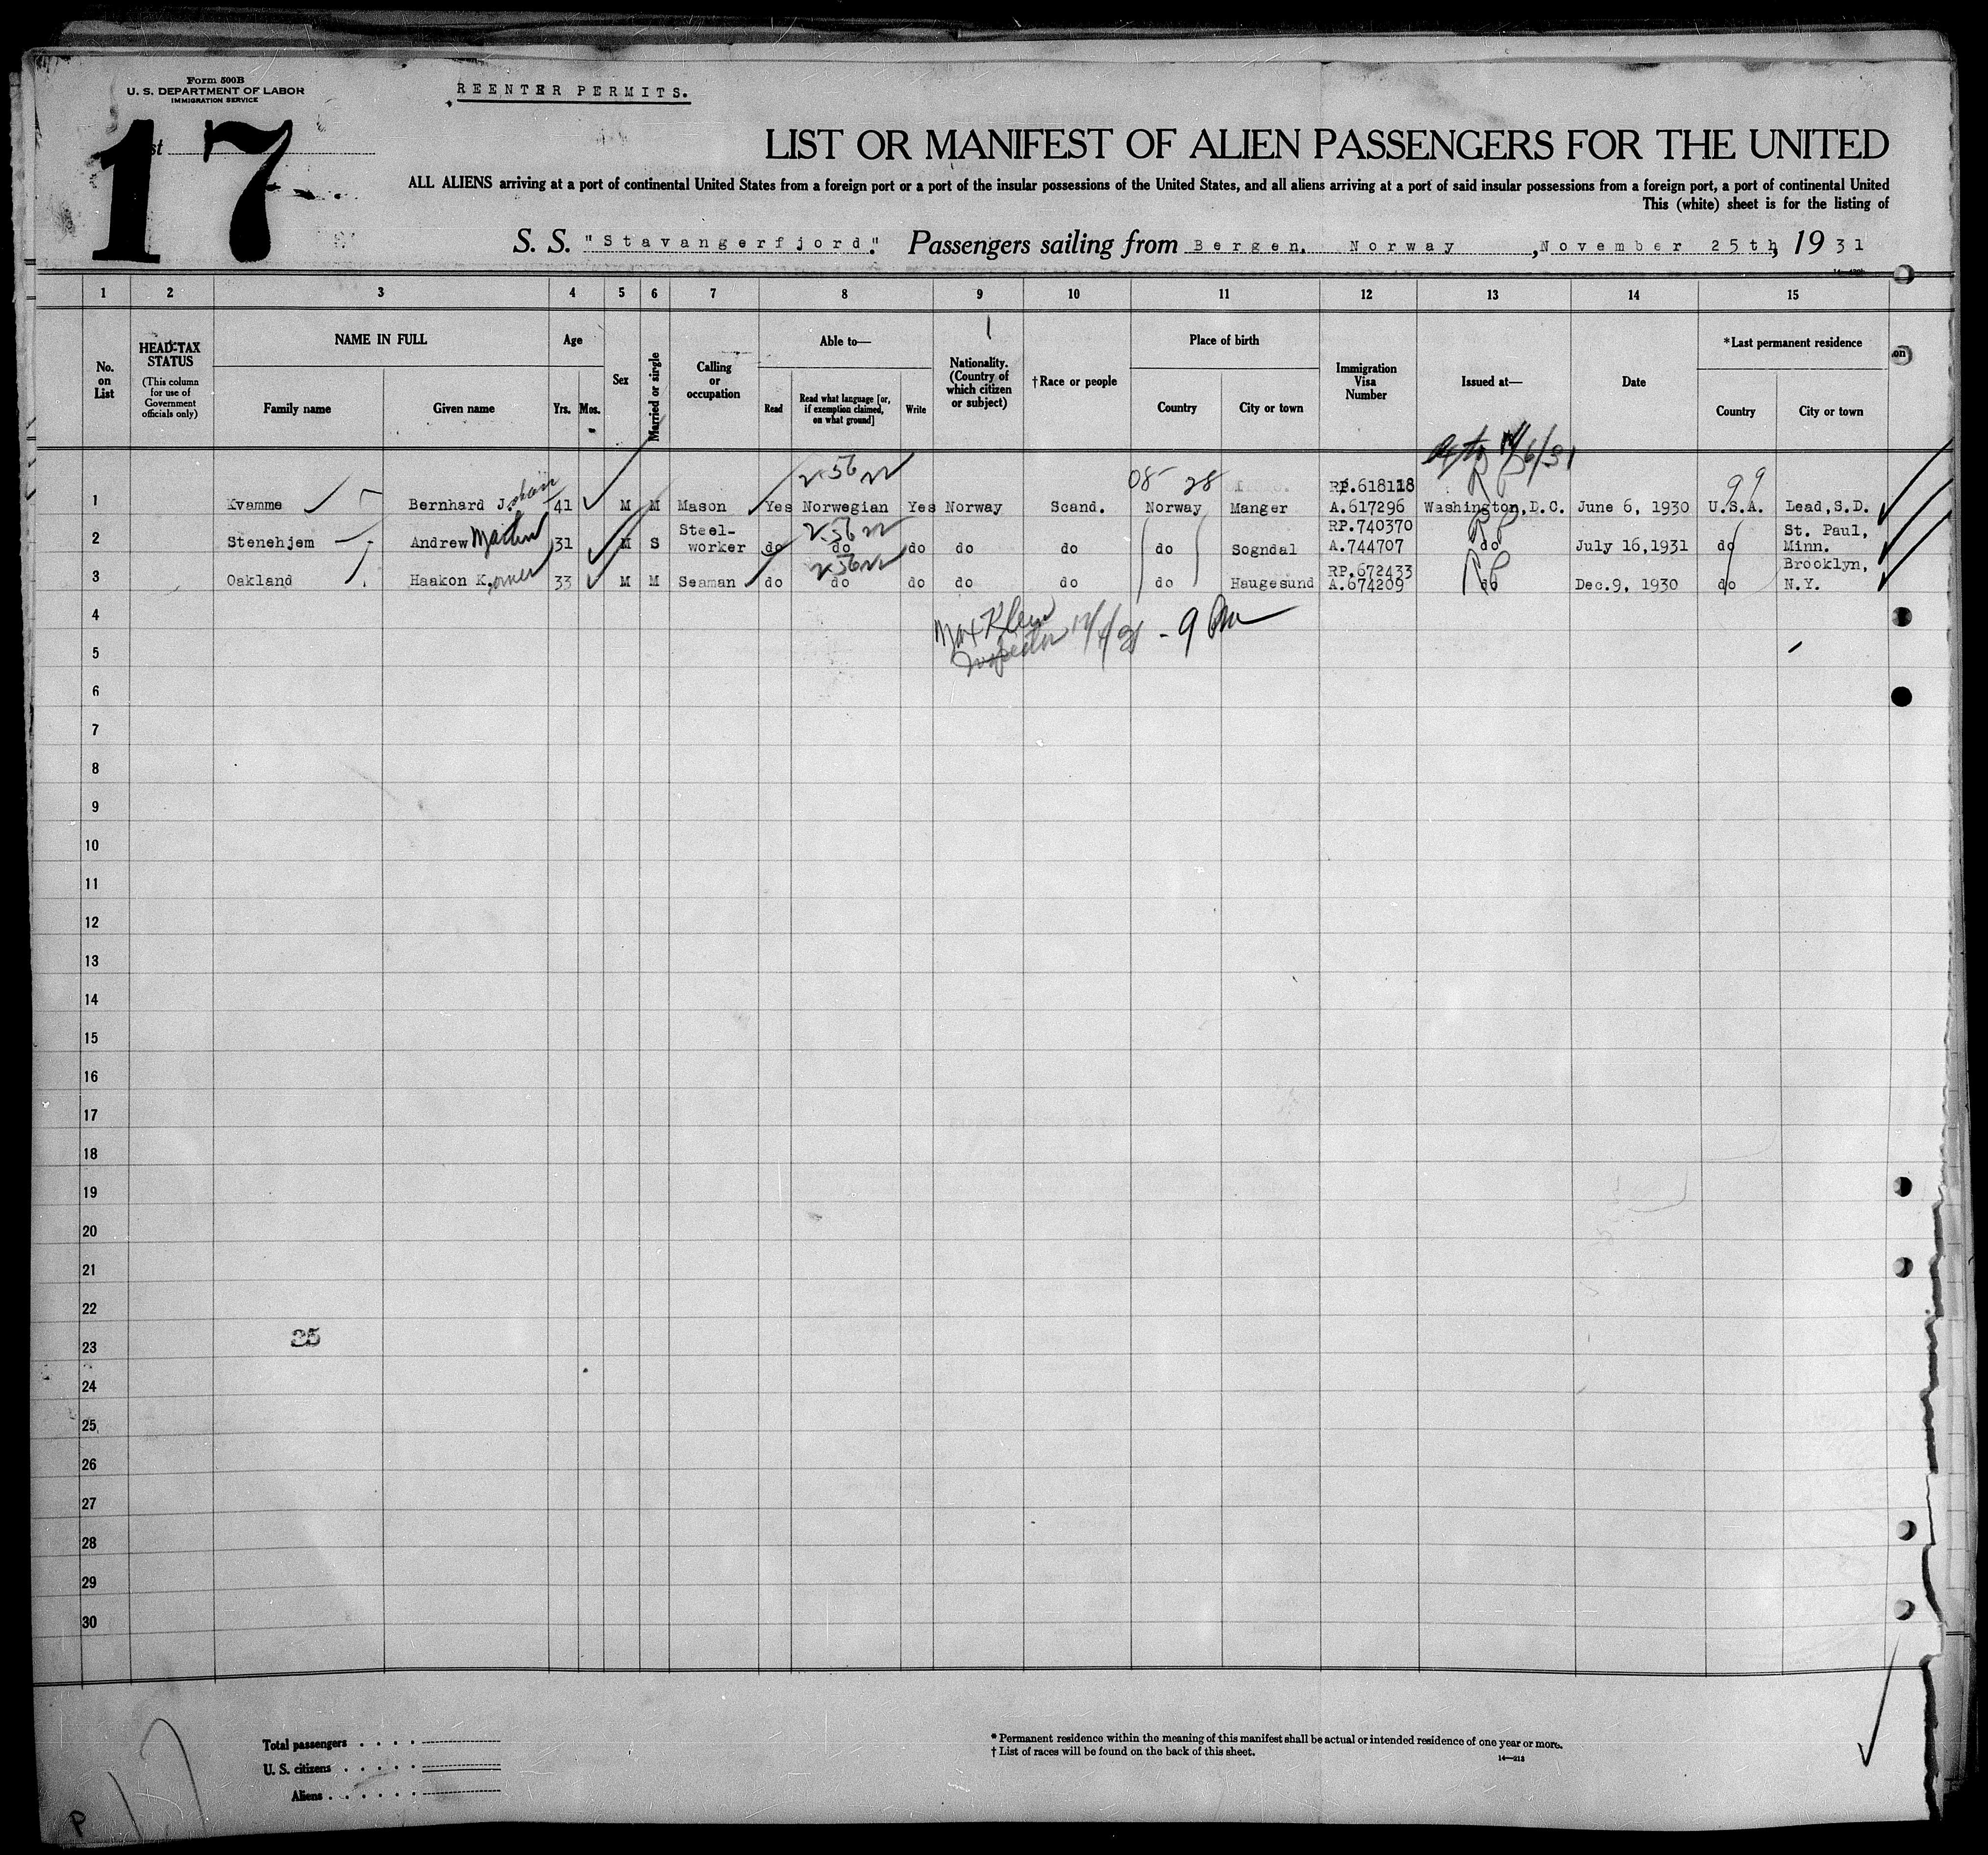 Form 500B
U. S. DEPARTMENT OF LABOR
IMMIGRATION SERVICE
REENTER PERMITS.
17
LIST OR MANIFEST OF ALIEN PASSENGERS FOR THE UNITED
ALL ALIENS arriving at a port of continental United States from a foreign port or a port of the insular possessions of the United States, and all aliens arriving at a port of said insular possessions from a foreign port, a port of continental United
This (white) sheet is for the listing of
S. S. "Stavangerfjord". Passengers sailing from Bergen, Norway, November 25th, 1931
1 2 3 4 5 6 7 8 9 10 11 12 13 14 15
No. on List
HEAD-TAX STATUS
(This column for use of Government officials only)
NAME IN FULL
Family name
Given name
Age
Yrs. Mos.
Sex
Married or single
Calling or occupation
Able to—
Read
Read what language [or, if exemption claimed, on what ground]
Write
Nationality. (Country of which citizen or subject)
†Race or people
Place of birth
Country
City or town
Immigration Visa Number
Issued at—
Date
*Last permanent residence
Country
City or town
2-56 22 08 28 RP 99
1 Kvamme Bernhard Johan 41 M M Mason Yes Norwegian Yes Norway Scand. Norway Manger RP.618118 A.617296 Washington,D.C. June 6, 1930 U.S.A. Lead,S.D.
2-56 22 RP
2 Stenehjem Andrew Martin 31 M S Steel-worker do do do do do do Sogndal RP.740370 A.744707 do July 16,1931 do St. Paul, Minn.
2-56 22 RP
3 Oakland Haakon K. 33 M M Seaman do do do do do do Haugesund RP.672433 A.674209 do Dec.9, 1930 do Brooklyn, N.Y.
4
Max Klein
Inspector - 9 Pm
5
6
7
8
9
10
11
12
13
14
15
16
17
18
19
20
21
22
23 25
24
25
26
27
28
29
30
Total passengers
U. S. citizens
Aliens
* Permanent residence within the meaning of this manifest shall be actual or intended residence of one year or more.
† List of races will be found on the back of this sheet.
14—213
P